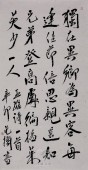 獨在異鄉為異客每
逢佳節倍思親遙知
兄弟登高處遍插茱
萸少一人
詩一首
辛卯
書